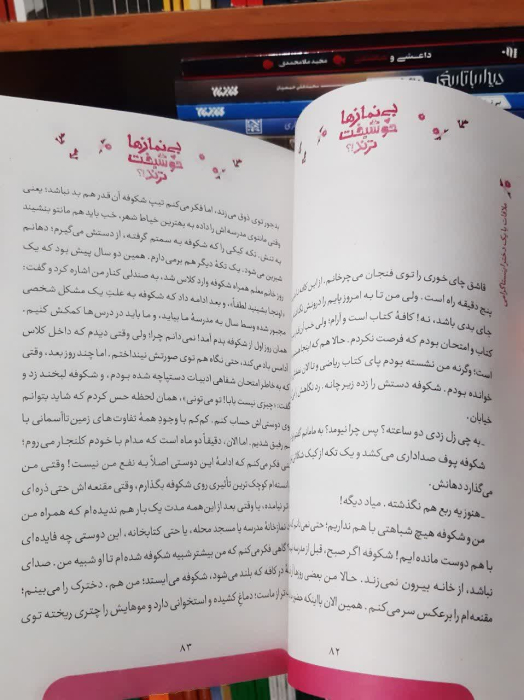 داعشی و
مجید ملامحمدی
بی‌نمازها
خوشبخت
ترند؟!
ملاقات با یک دختر اینستاگرامی
قاشق چای خوری را توی فنجان می‌چرخانم. از این کافه تا
پنج دقیقه راه است. ولی من تا به امروز پایم را درونش نگذاشته
جای بدی باشد، نه! کافهٔ کتاب است و آرام؛ ولی
کتاب و امتحان بودم که فرصت نکردم. حالا هم که اینجا
است؛ وگرنه من نشسته بودم پای کتاب ریاضی و تا الان
خوانده بودم. شکوفه دستش را زده زیر چانه. رد نگاهش
خیابان.
ـ به چی زل زدی دو ساعته؟ پس چرا نیومد؟ به مامانم گفتم
شکوفه پوف صداداری می‌کشد و یک تکه از کیک شکلاتی
می‌گذارد دهانش.
ـ هنوز یه ربع هم نگذشته. میاد دیگه!
من و شکوفه هیچ شباهتی با هم نداریم؛ حتی نمی‌دانم
با هم دوست مانده‌ایم! شکوفه اگر صبح، قبل از مدرسه
نباشد، از خانه بیرون نمی‌زند. حالا من بعضی روزها
مقنعه‌ام را برعکس سر می‌کنم. همین الان با اینکه
۸۲
بی‌نمازها
خوشبخت
ترند؟!
بدجور توی ذوق می‌زند، اما فکر می‌کنم تیپ شکوفه آن قدر هم بد نباشد؛ یعنی
وقتی مانتوی مدرسه‌اش را داده به بهترین خیاط شهر، خب باید هم مانتو بنشیند
به تنش. تکه کیکی را که شکوفه به سمتم گرفته، از دستش می‌گیرم؛ دهانم
شیرین می‌شود. یک تکهٔ دیگر هم برمی‌دارم. همین دو سال پیش بود که یک
روز خانم معلم همراه شکوفه وارد کلاس شد، به صندلی کنار من اشاره کرد و گفت:
«اونجا بشینید لطفاً»، و بعد ادامه داد که شکوفه به علتِ یک مشکل شخصی
مجبور شده وسط سال به مدرسهٔ ما بیاید، و ما باید در درس‌ها کمکش کنیم.
همان روز اول از شکوفه بدم آمد! نمی‌دانم چرا؛ ولی وقتی دیدم که داخل کلاس
آدامس باد می‌کند، حتی نگاه هم توی صورتش نینداختم، اما چند روز بعد، وقتی
که به خاطر امتحان شفاهی ادبیات دستپاچه شده بودم، و شکوفه لبخند زد و
گفت: «چیزی نیست بابا! تو می‌تونی»، همان لحظه حس کردم که شاید بتوانم
روی دوستی‌اش حساب کنم. کم‌کم با وجودِ همهٔ تفاوت‌های زمین تا آسمانی با
هم رفیق شدیم. اما الان، دقیقاً دو ماه است که مدام با خودم کلنجار می‌روم؛
یعنی فکر می‌کنم که ادامهٔ این دوستی اصلاً به نفع من نیست! وقتی من
نتوانسته‌ام کوچک‌ترین تأثیری روی شکوفه بگذارم، وقتی مقنعه‌اش حتی ذره‌ای
جلوتر نیامده، یا وقتی بعد از این همه مدت یک بار هم ندیده‌ام که همراه من
نمازخانهٔ مدرسه یا مسجد محله، یا حتی کتابخانه، این دوستی چه فایده‌ای
گاهی فکر می‌کنم که من بیشتر شبیه شکوفه شده‌ام تا او شبیه من. صدای
در کافه که بلند می‌شود، شکوفه می‌ایستد؛ من هم. دخترک را می‌بینم؛
از ماست؛ دماغِ کشیده و استخوانی دارد و موهایش را چتری ریخته توی
۸۳